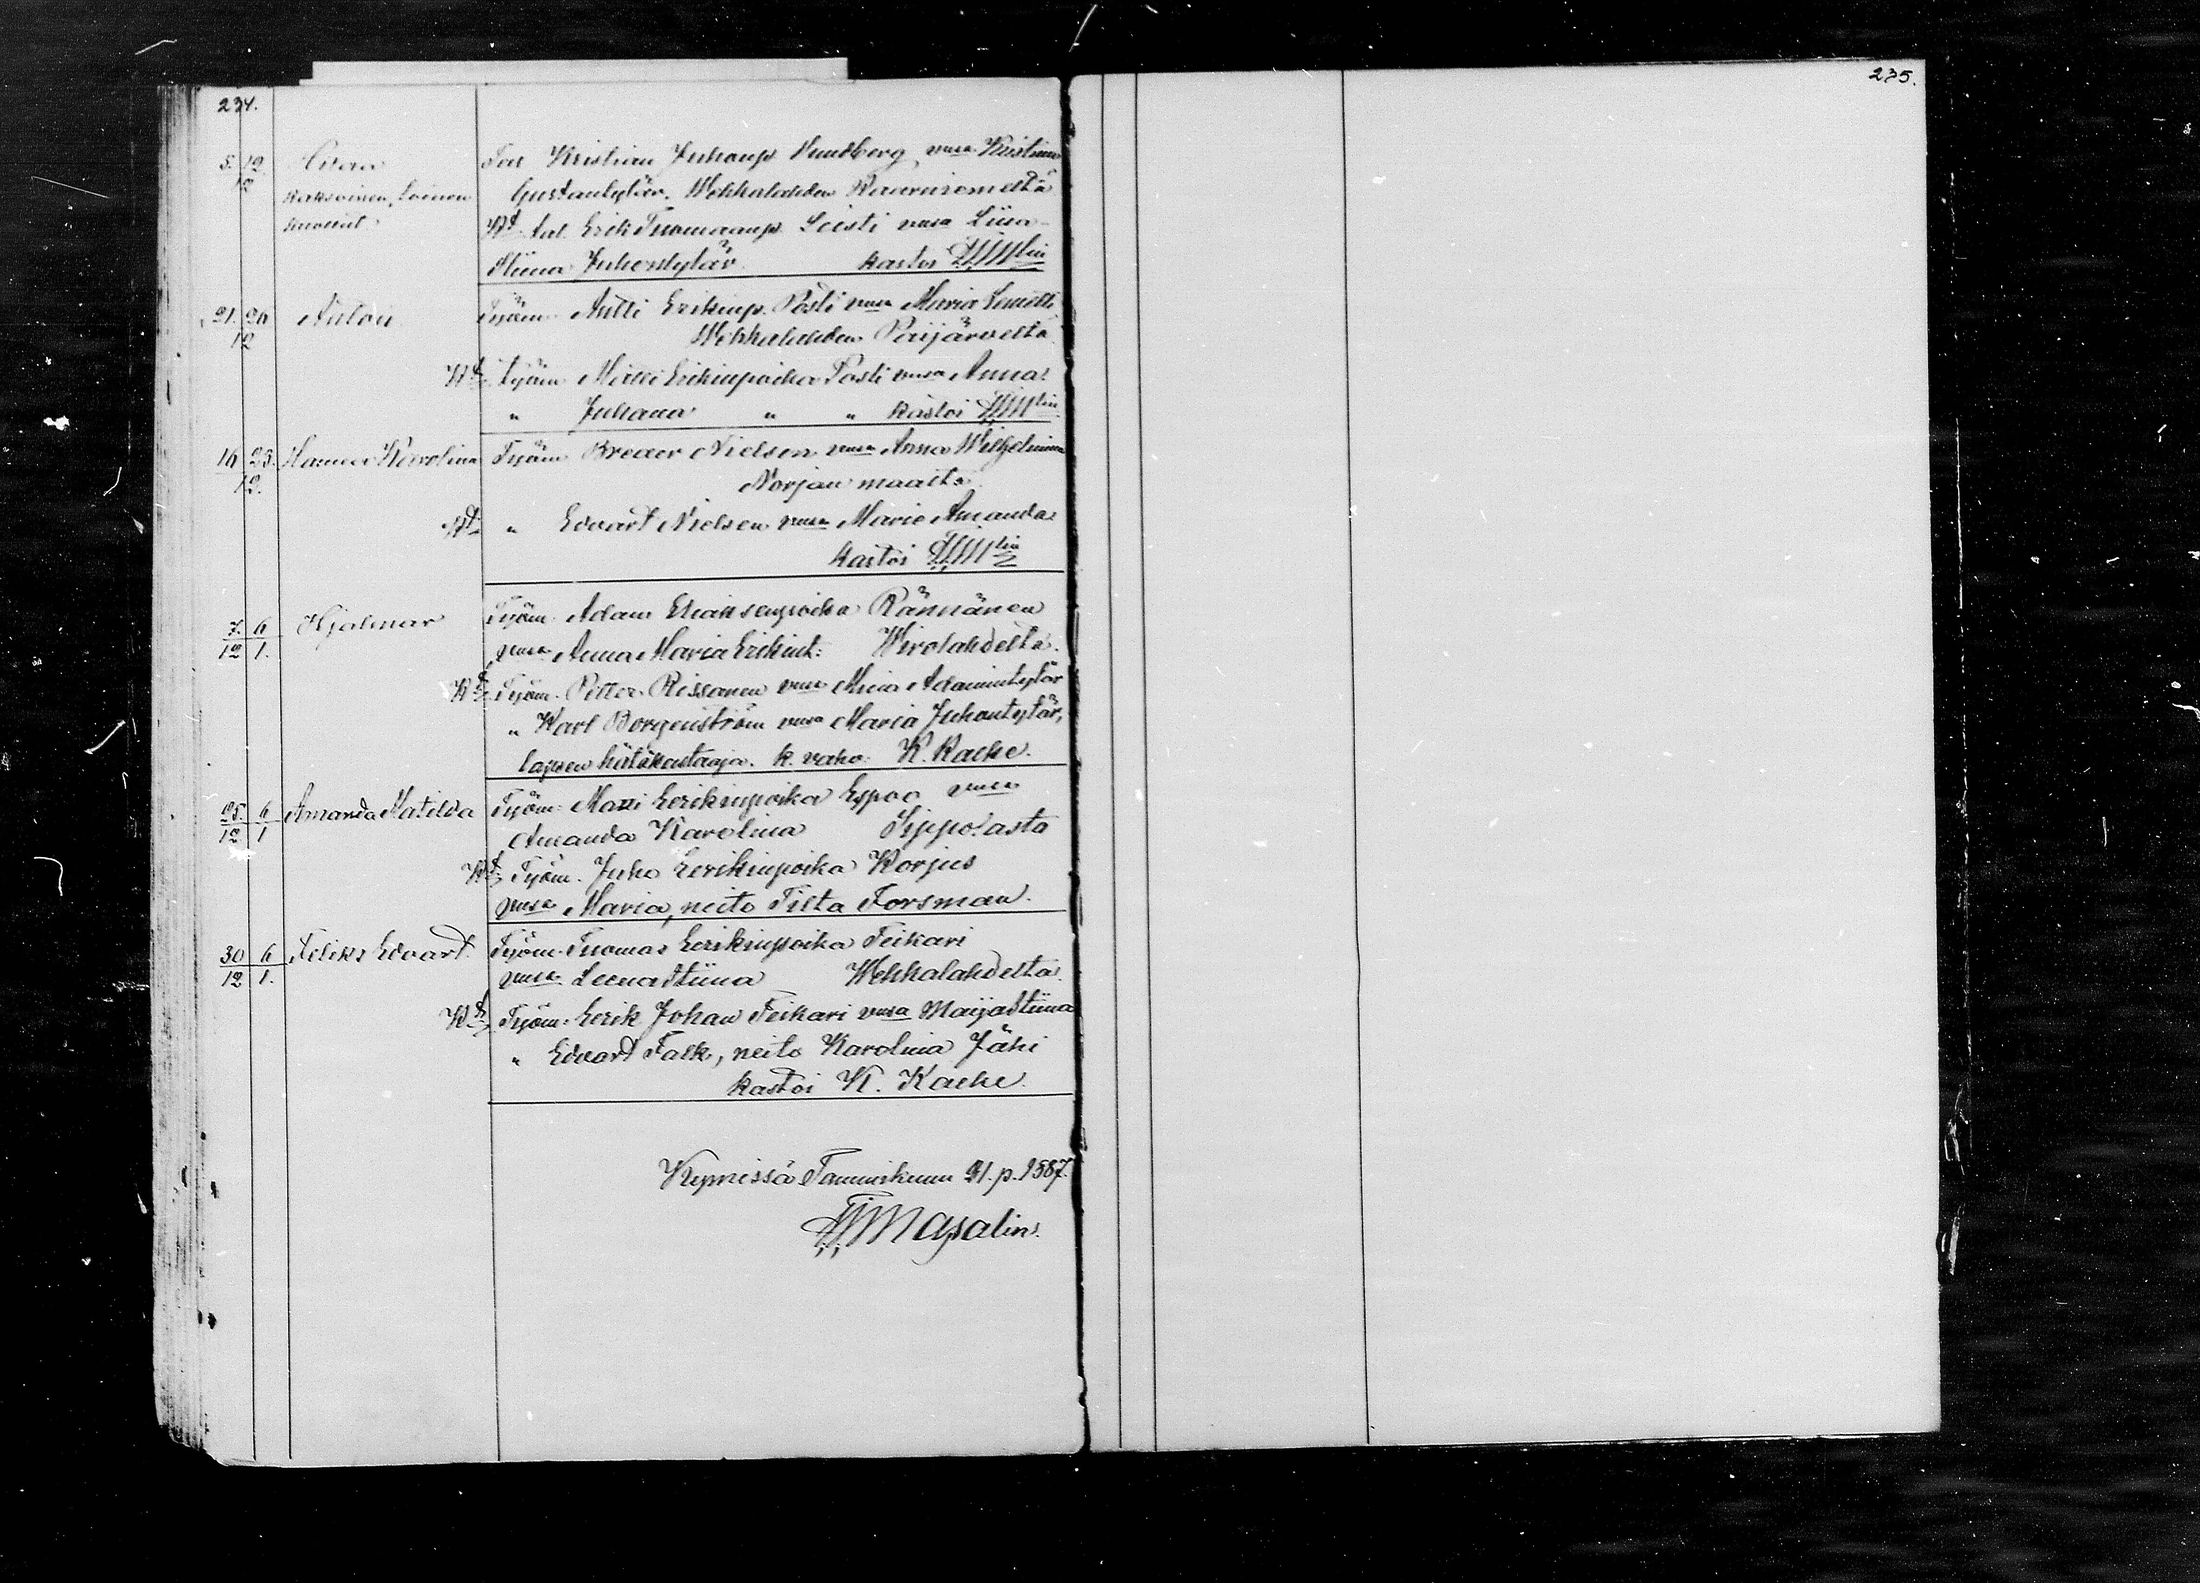 234.
235.
5. 19.
12
Kaksoinen, toinen
kuollut
Tal Kristian Juhanp Sundberg, vmsa Kristiina
Gustantytär. Wehkalahden
Kt. tal. Erik Tuomaanp. vmsa Liisa
Stiina Juhontytär kastoi
21. 26
12
Anton
Työm. Antti Erikinp. Posti vmsa Maria
Wehkalahden Paijärveltä
Kt. työm Matti Erikinpoika Posti vmsa Anna
" Juhana " " kastoi
16 25.
12.
Karolina
Työm Nielsen vmsa Anna Wilhelmina
Norjan maalta
Kt. " Edvart Nielsen vmsa Maria Amanda
kastoi
7. 6
12 1.
Hjalmar
Työm. Adam Eliaksenpoika Rännänen
vmsa Anna Maria Erikint: Wirolahdelta.
Kt. Työm. Petter Rissanen vmsa Miina Adamintytär
" Karl Borgenström vmsa Maria Juhontytär,
lapsen hätäkastaja. k. vahv. K. Kache.
25. 6
12 1
Amanda Matilda
Työm. Matti Eerikinpoika Espoo vmsa
Amanda Karolina Sippolasta
Kt. Työm. Juho Eerikinpoika Korjus
vmsa Maria, neito Tilta Forsman.
30 6
12 1.
Feliks Edvart.
Työm. Tuomas Eerikinpoika Teikari
vmsa Leena Stiina Wehkalahdelta
Kt. Työm. Eerik Johan Teikari vmsa Maija Stiina
" Edvart Falk, neito Karolina Jähi
kastoi K. Kache.
Kymissä Tammikuun 31. p. 1887.
Masalin.